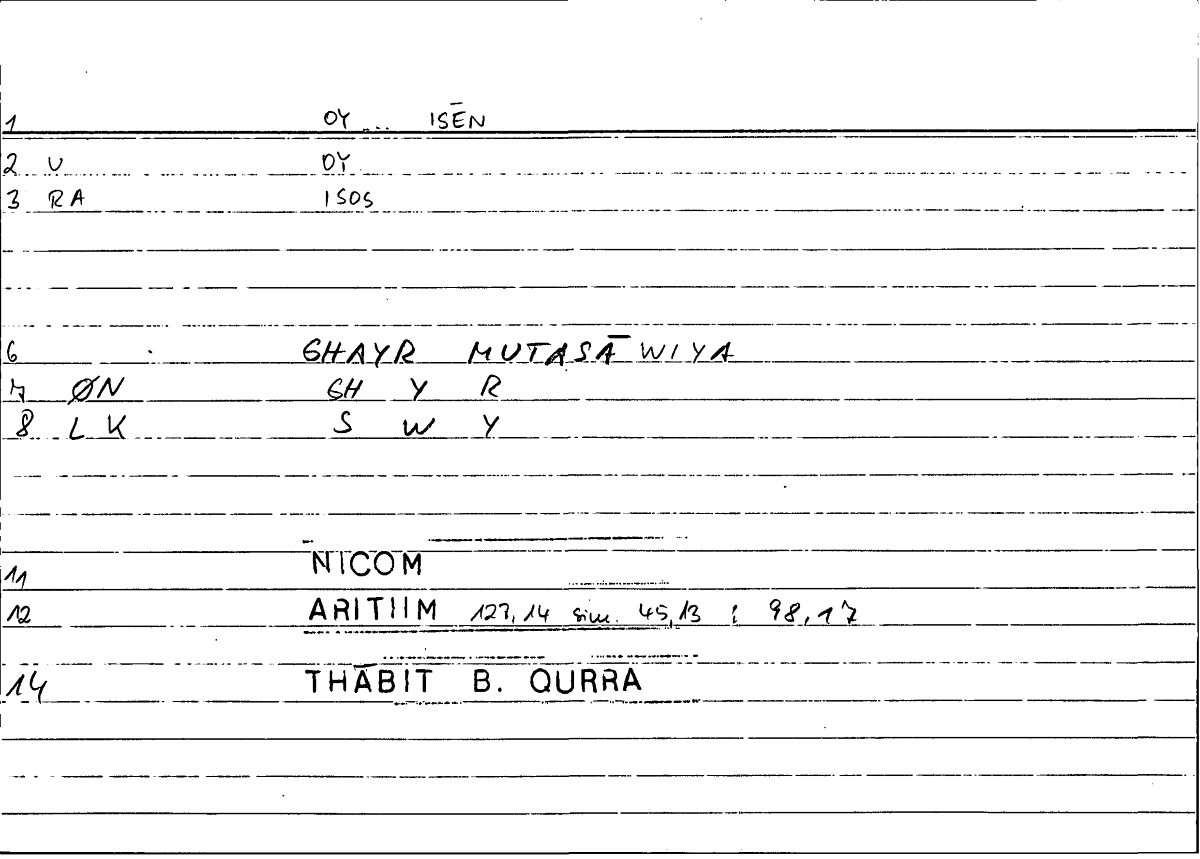 1 OY ... ISĒN
2 U OY
3 RA ISOS
6 GHAYR MUTASĀWIYA
7 ØN GH Y R
8 L K S W Y
11 NICOM
12 ARITIIM 127,14 sim. 45,13 ; 98,17
14 THĀBIT B. QURRA